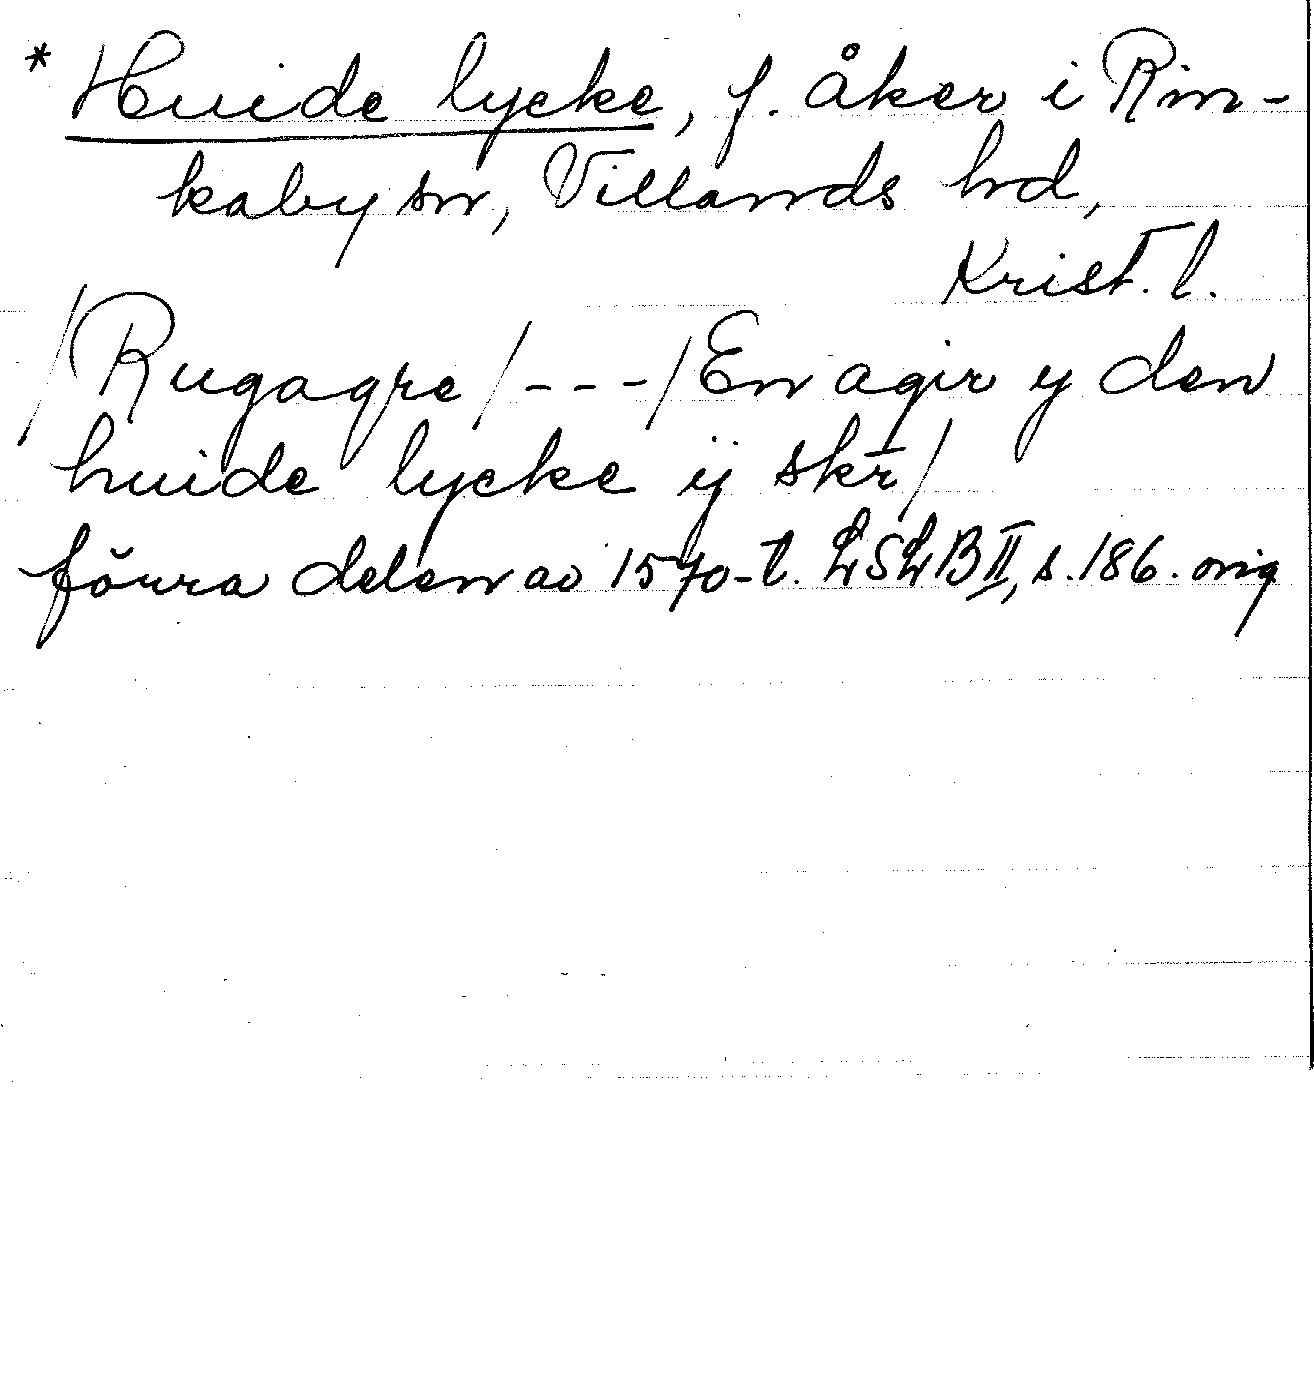 * Huide lycke, f. åker i Rin-
kaby sn, Villands hd,
Krist. l.
/Rugagre/---/En agir y den
huide lycke ij skr̄/
förra delen av 1570-t. LSLB II, s. 186. orig